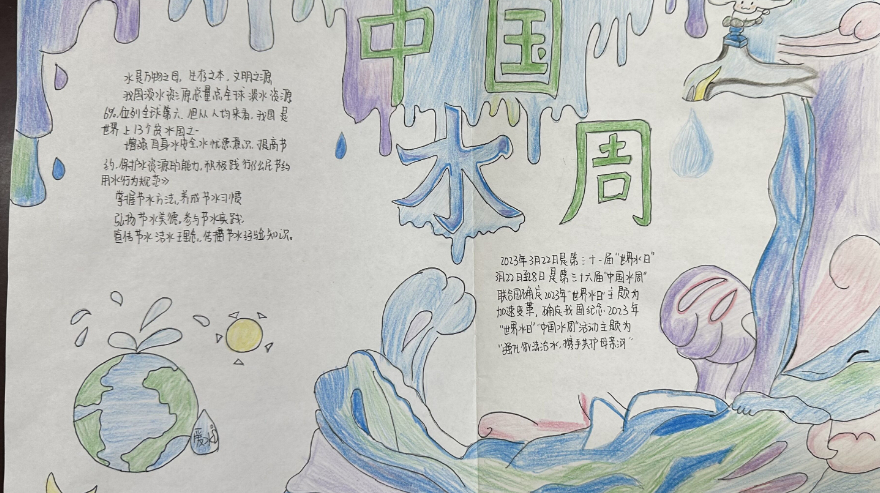 中国
水周
水是万物之母、生存之本、文明之源
我国淡水资源总量点全球淡水资源
6%,位列全球第六,但从人均来看,我国是
世界上13个贫水国之一
增强自身水安全水忧患意识、提高节
约、保护水资源的能力,积极践行《公民节约
用水行为规范》
掌握节水方法、养成节水习惯
弘扬节水美德,参与节水实践
宣传节水洁水理念,传播节水经验知识。
2023年3月22日是第三十一届“世界水日”
3月22日到28日是第三十六届“中国水周”
联合国确定2023年“世界水日”主题为
加速变革,确定我国纪念2023年
“世界水日”“中国水周”活动主题为
“强化依法治水,携手共护母亲河”
爱水